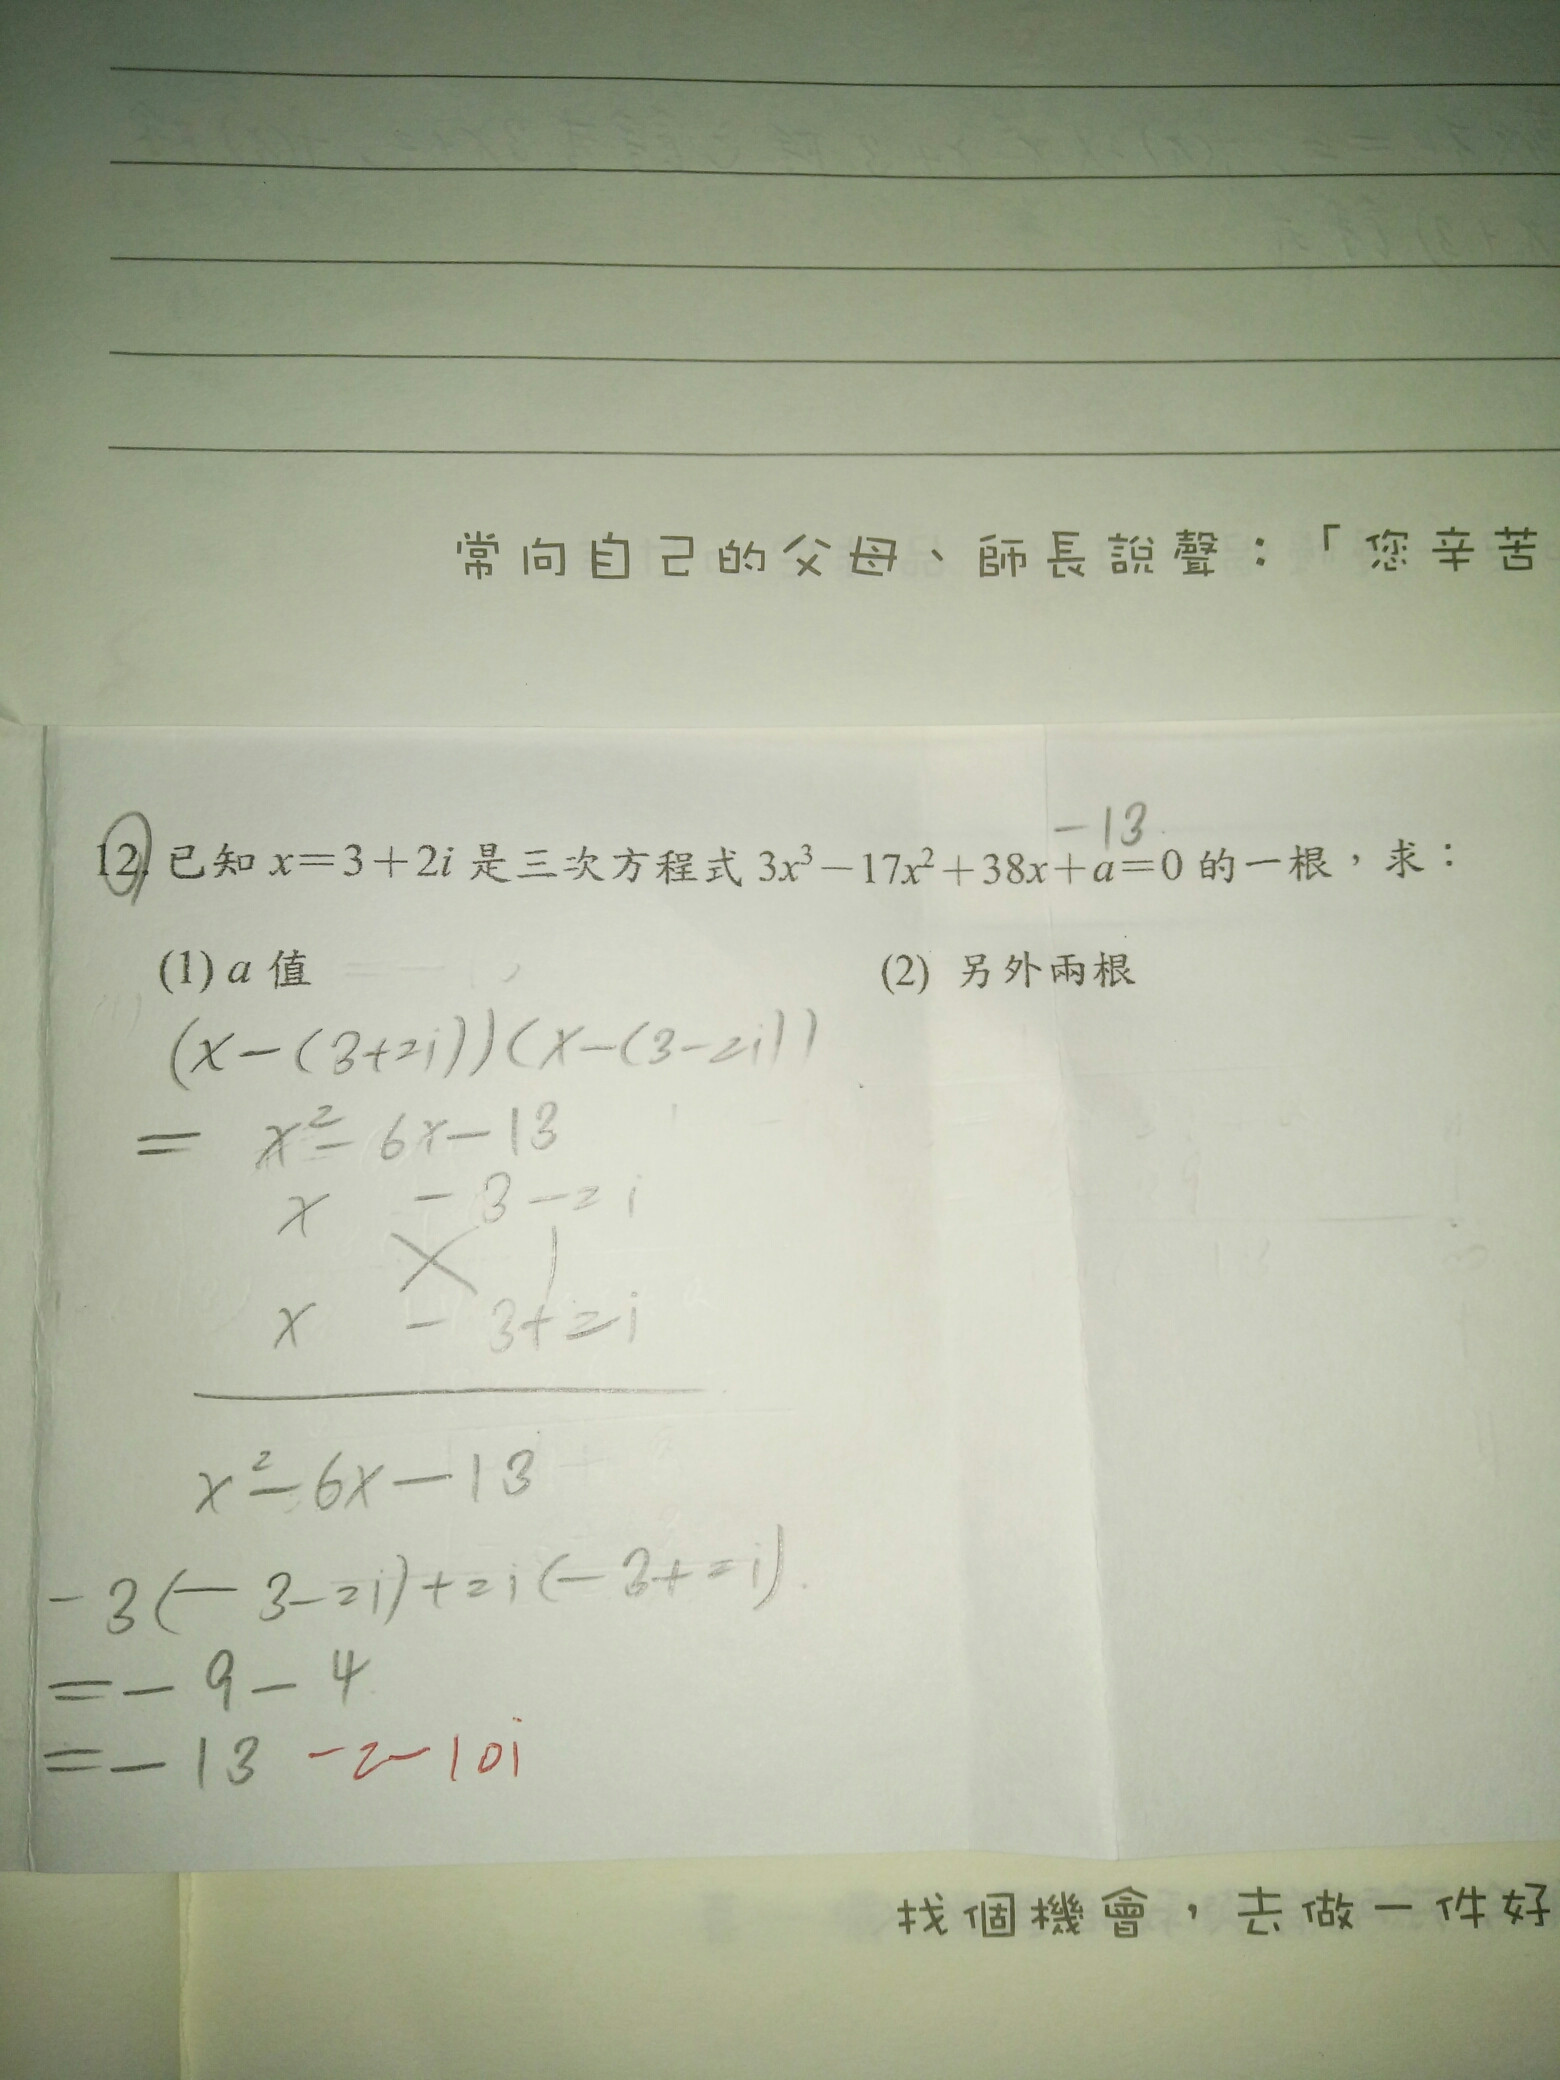 常向自己的父母、師長說聲：「您辛苦
-13
12. 已知 x=3+2i 是三次方程式 3x³-17x²+38x+a=0 的一根，求：
(1) a 值 (2) 另外兩根
(x-(3+2i))(x-(3-2i))
= x²-6x-13
x -3-2i
x -3+2i
x²-6x-13
-3(-3-2i)+2i(-3+2i)
=-9-4
=-13 -2-10i
找個機會，去做一件好